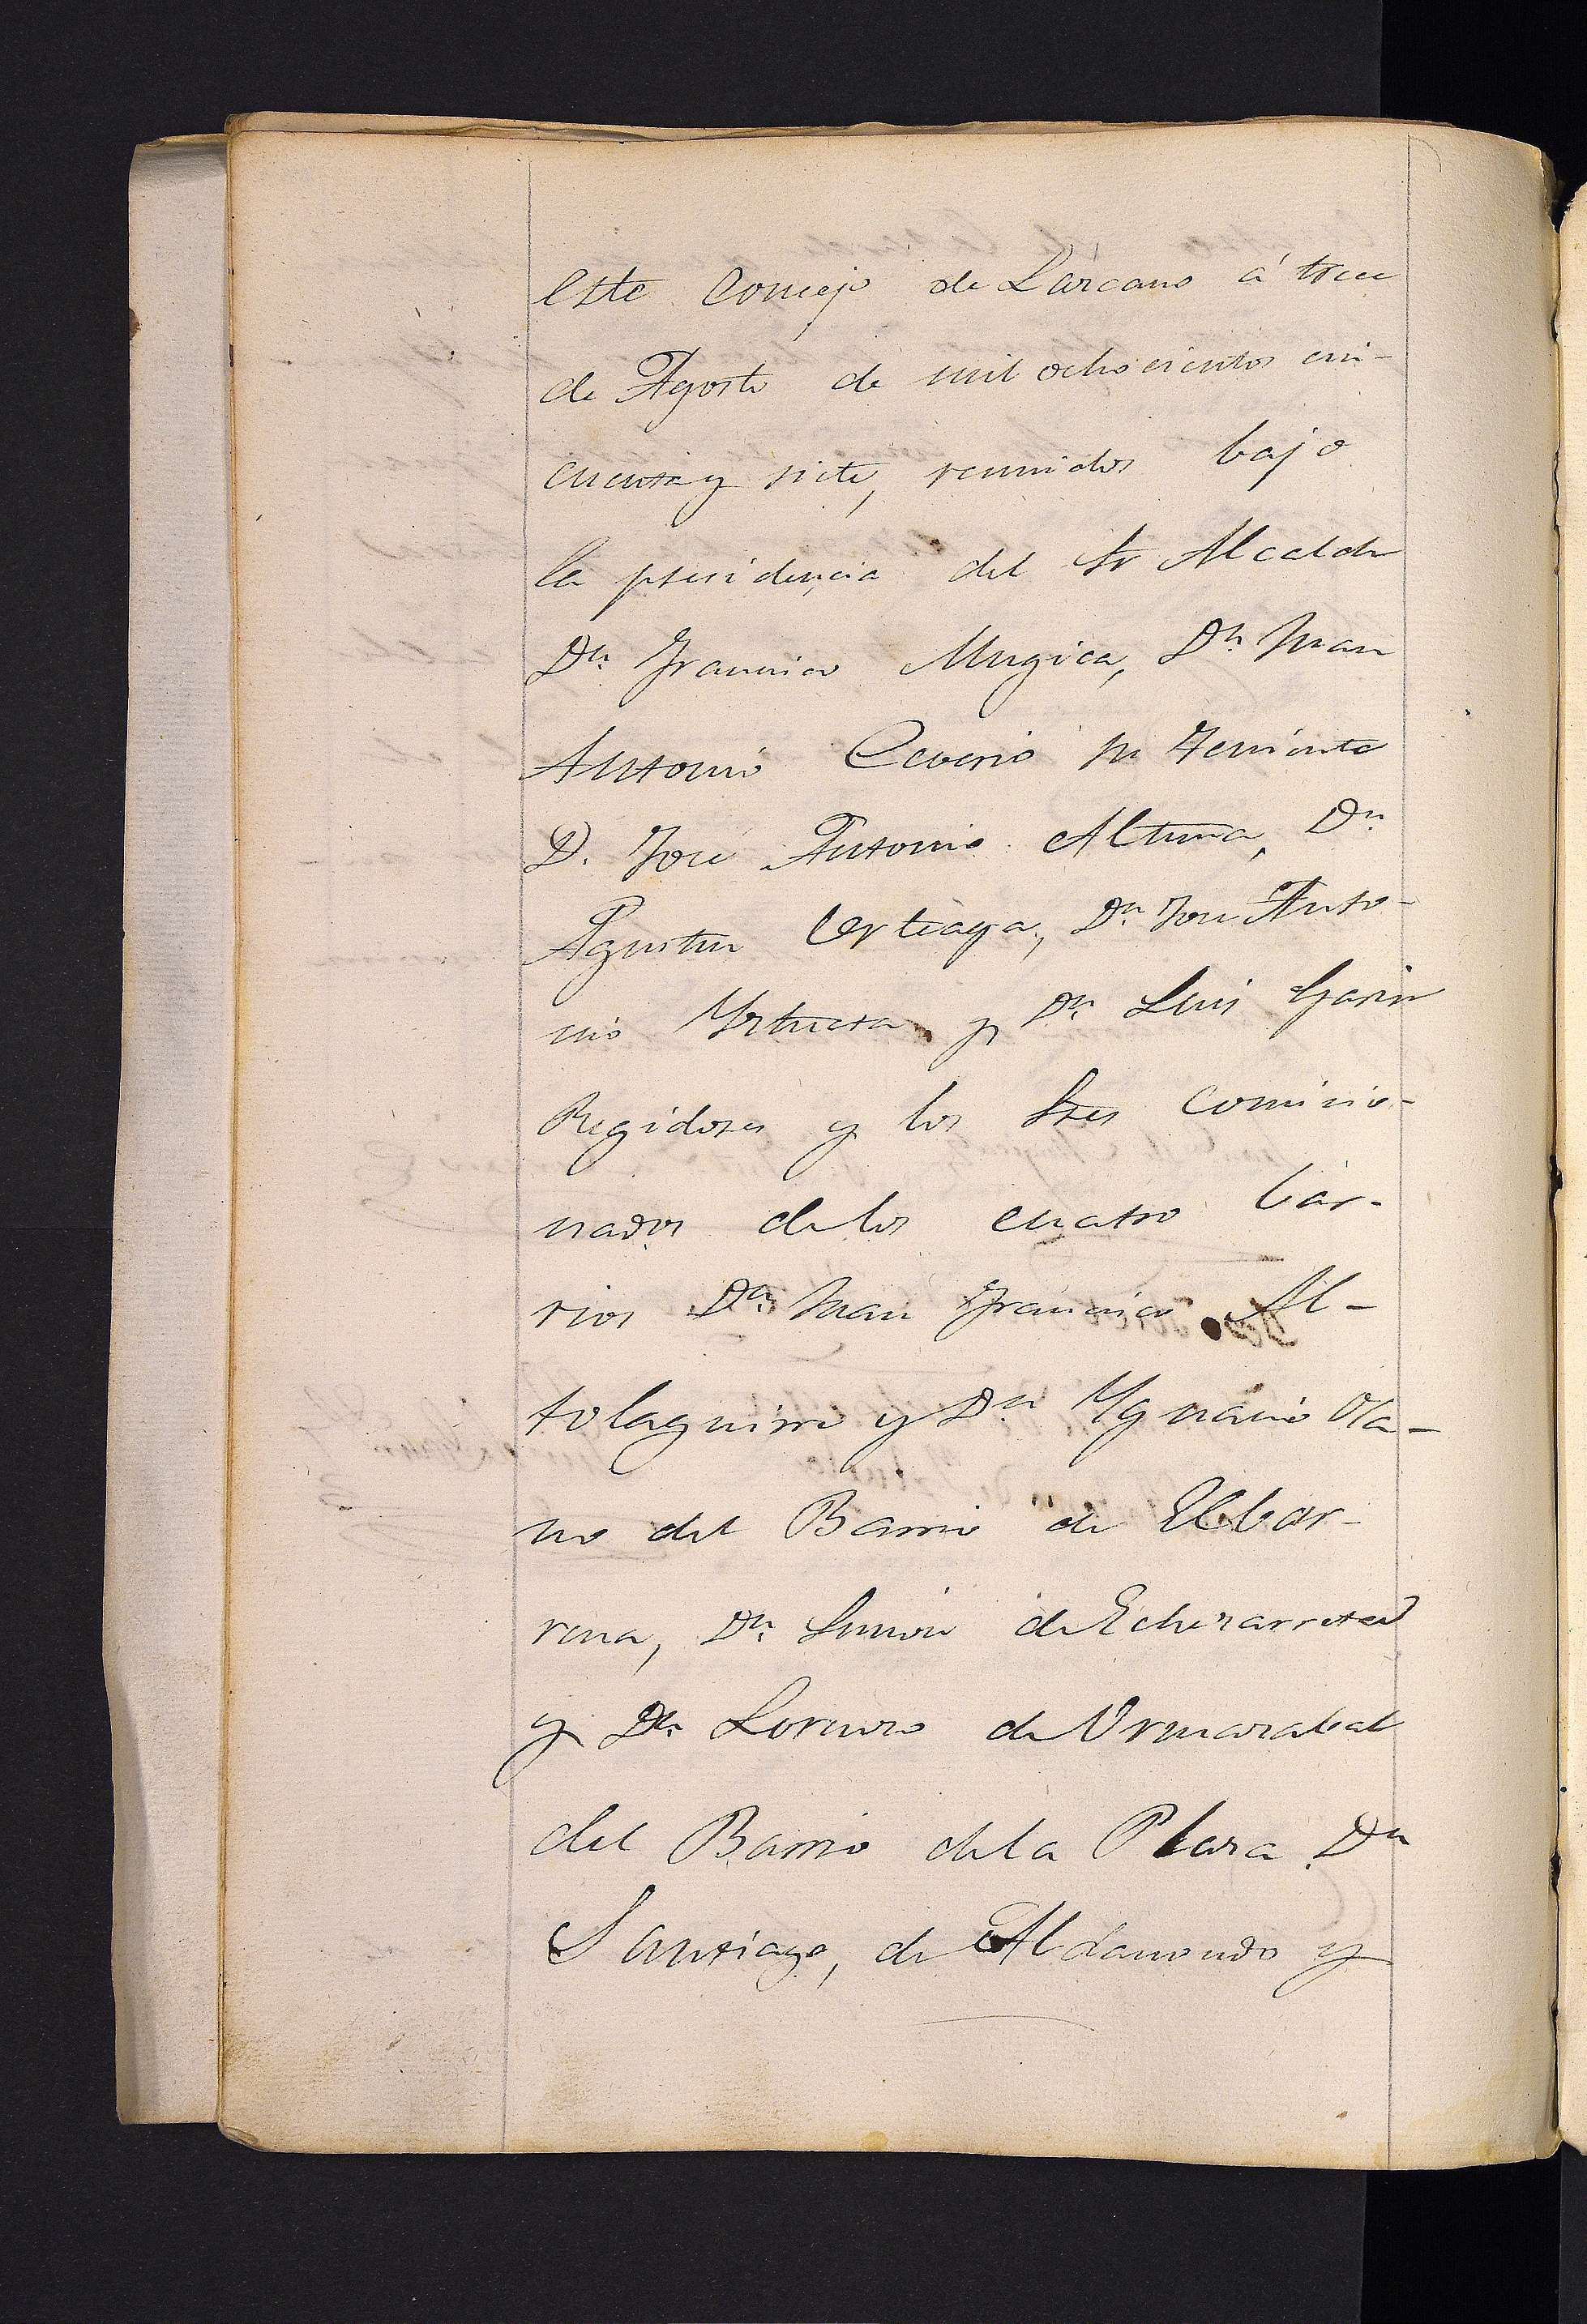 este Concejo de Lazcano á trece
de Agosto de mil ochocientos cin-
cuenta y siete, reunidos bajo
la presidencia del Sr Alcalde
Dn Francisco Mugica, Dn Juan
Antonio Ceverio su Teniente
D. José Antonio Altuna, Dn
Agustin Urteaga, Dn José Anto-
nio Yrtueta y Dn Luis Garin
Regidores y los Sres Comisio-
nados de los cuatro bar-
rios Dn Juan Francisco Al-
tolaguirre y Dn Ygnacio Ola-
no del Barrio de Elbar-
rena, Dn Simon de Echezarreta
y Dn Lorenzo de Urmazabal
del Barrio de la Plaza Dn
Santiago, de Aldamondo y